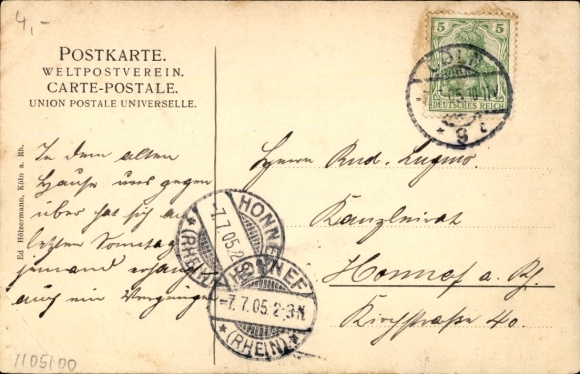 4,-
POSTKARTE.
WELTPOSTVEREIN.
CARTE-POSTALE.
UNION POSTALE UNIVERSELLE.
Ed Hölzermann, Köln a. Rh.
In dem alten
Hause uns gegen
über hat sich am
letzten Sonntag
jemand erhängt
auch ein Vergnügen
5 5
DEUTSCHES REICH
CÖLN
7.05.10-11
* 9 t
HONNEF
-7.7.05.2
*(RHEIN)
HONNEF
-7.7.05.2-3N
*(RHEIN)*
Herrn Rud.
Kanzleirat
Honnef a. Rh.
Kirchstraße 40.
1105100